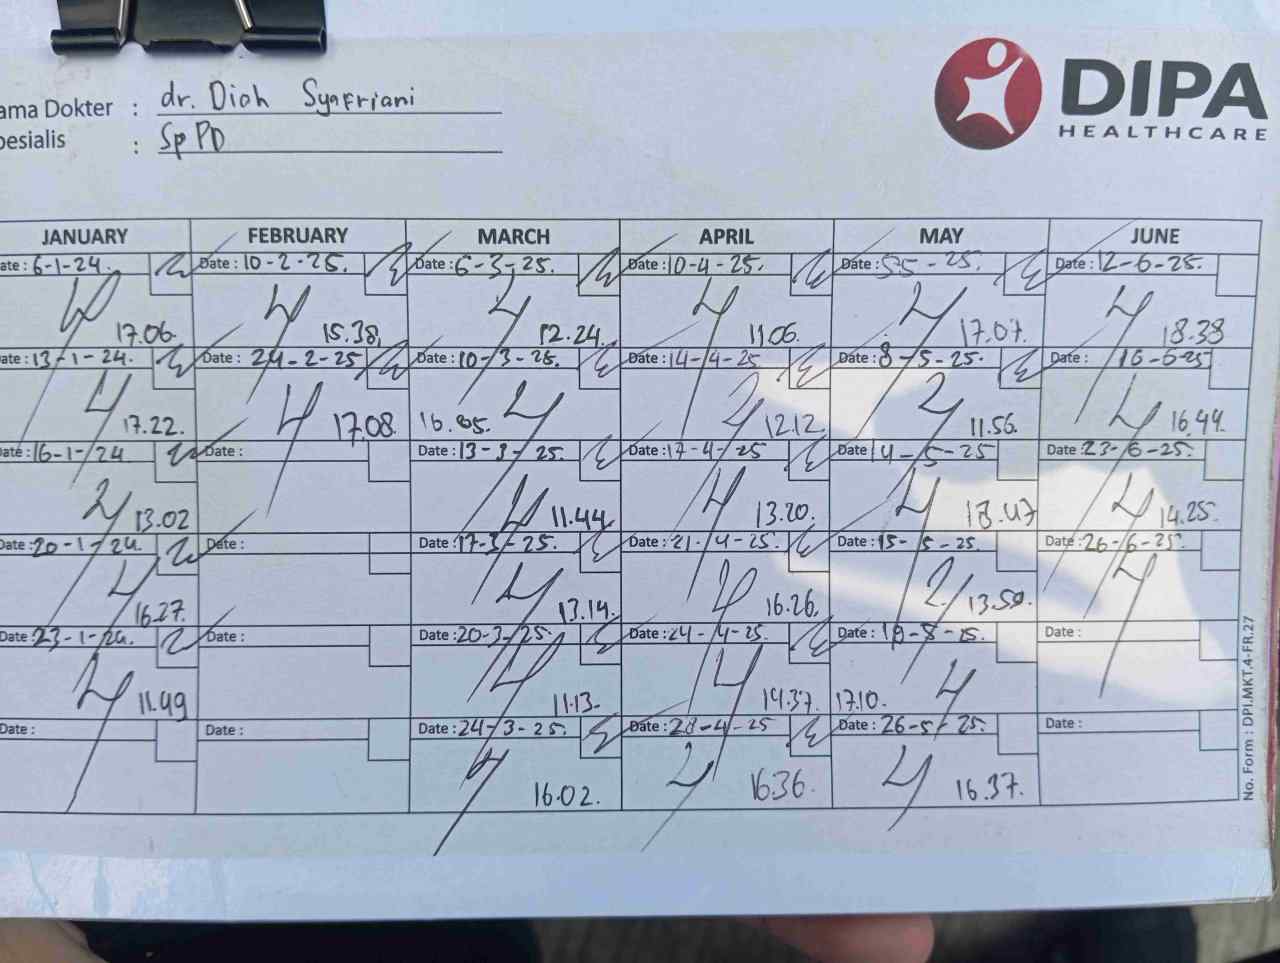 DIPA
HEALTHCARE
ama Dokter : dr. Diah Syafriani
pesialis : Sp PD
JANUARY FEBRUARY MARCH APRIL MAY JUNE
ate: 6-1-24. Date: 10-2-25. Date: 6-3-25. Date: 10-4-25. Date: 5-5-25. Date: 12-6-25.
17.06. 15.38, 12.24. 11.06. 17.07. 18.38
ate: 13-1-24. Date: 24-2-25 Date: 10-3-25. Date: 14-4-25 Date: 8-5-25. Date: 16-6-25
17.22. 17.08. 16.05. 12.12 11.56. 16.44.
ate: 16-1-24 Date: Date: 13-3-25. Date: 17-4-25 Date: 14-5-25 Date: 23-6-25.
13.02 11.44 13.20. 18.47 14.25.
Date: 20-1-24. Date: Date: 17-3-25. Date: 21-4-25. Date: 15-5-25. Date: 26-6-25.
16.27. 13.14. 16.26. 13.59.
Date: 23-1-24. Date: Date: 20-3-25. Date: 24-4-25. Date: 19-8-25. Date:
11.49 11.13. 14.37. 17.10.
Date: Date: Date: 24-3-25. Date: 28-4-25 Date: 26-5-25. Date:
16.02. 16.36. 16.37.
No. Form : DPI.MKT.4-FR.27